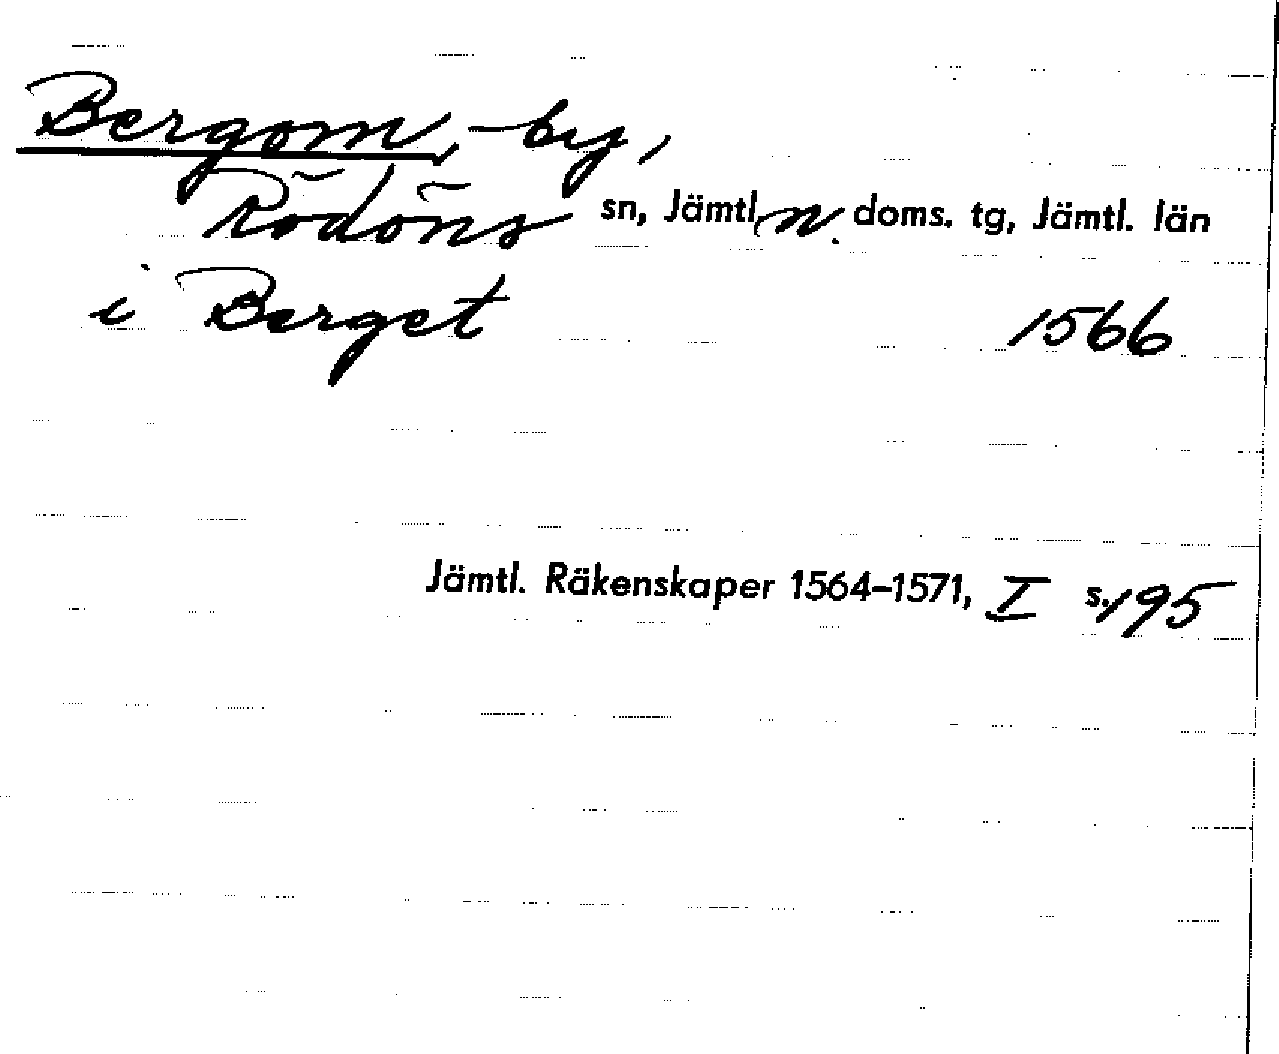 Bergom, -by,
Rödöns sn, Jämtl. n. doms. tg, Jämtl. län
i Berget 1566
Jämtl. Räkenskaper 1564–1571, I s. 195